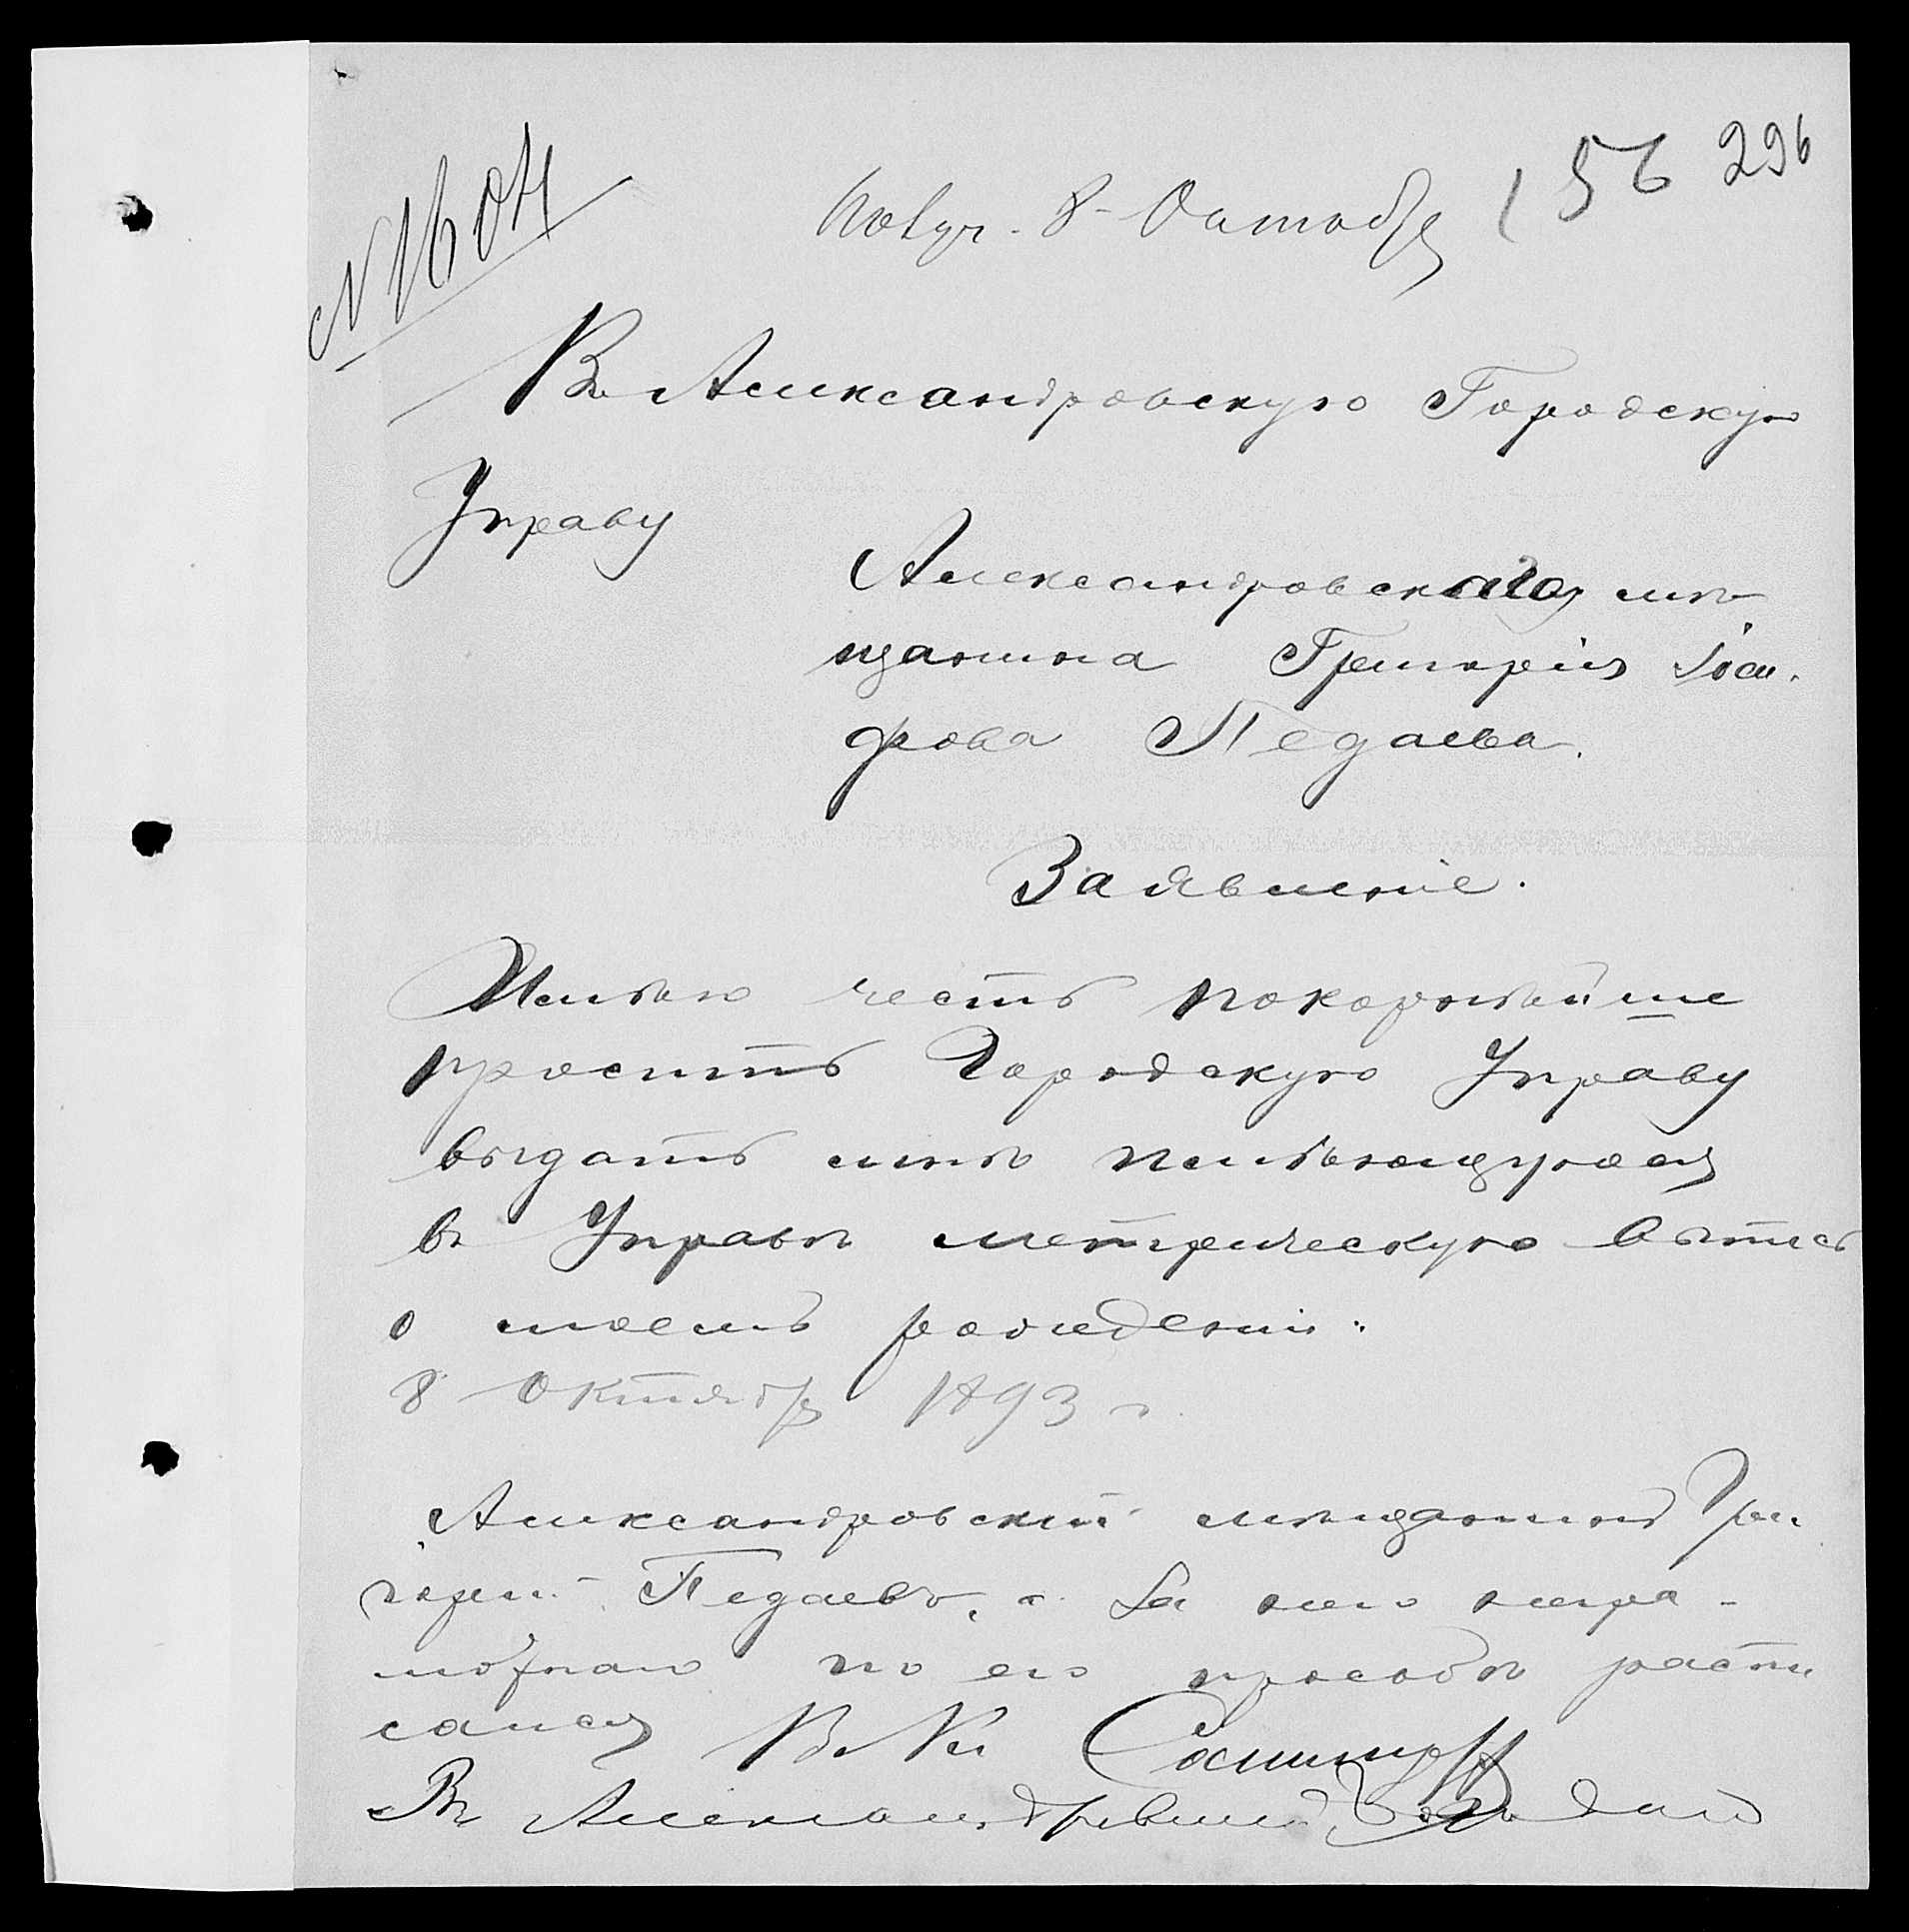 156 296
№ 1604
Получ. 8 Октября
Въ Александровскую Городскую
Управу
Александровскаго мѣ-
щанина Григорія
Педаева.
Заявленіе.
Имѣю честь покорнѣйше
просить Городскую Управу
выдать мнѣ имѣющуюся
въ Управѣ метрическую выпись
о моемъ рожденіи.
8 Октября 1893 г.
Александровскій мѣщанинъ Гри
горій Педаевъ, а за него негра-
мотнаго по его прозьбѣ распи
сался
Въ